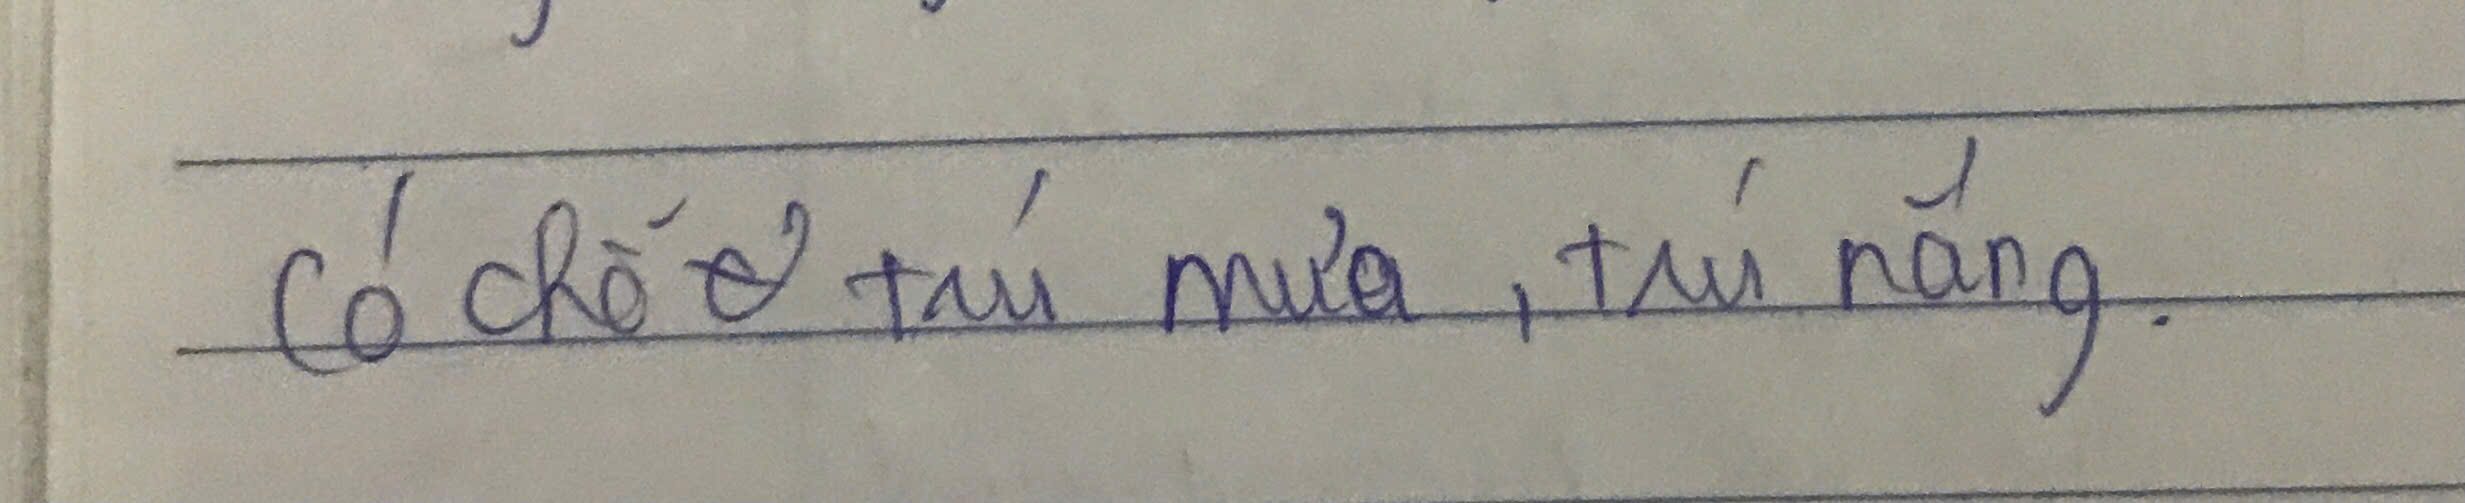 Có chỗ ở trú mưa, trú nắng.